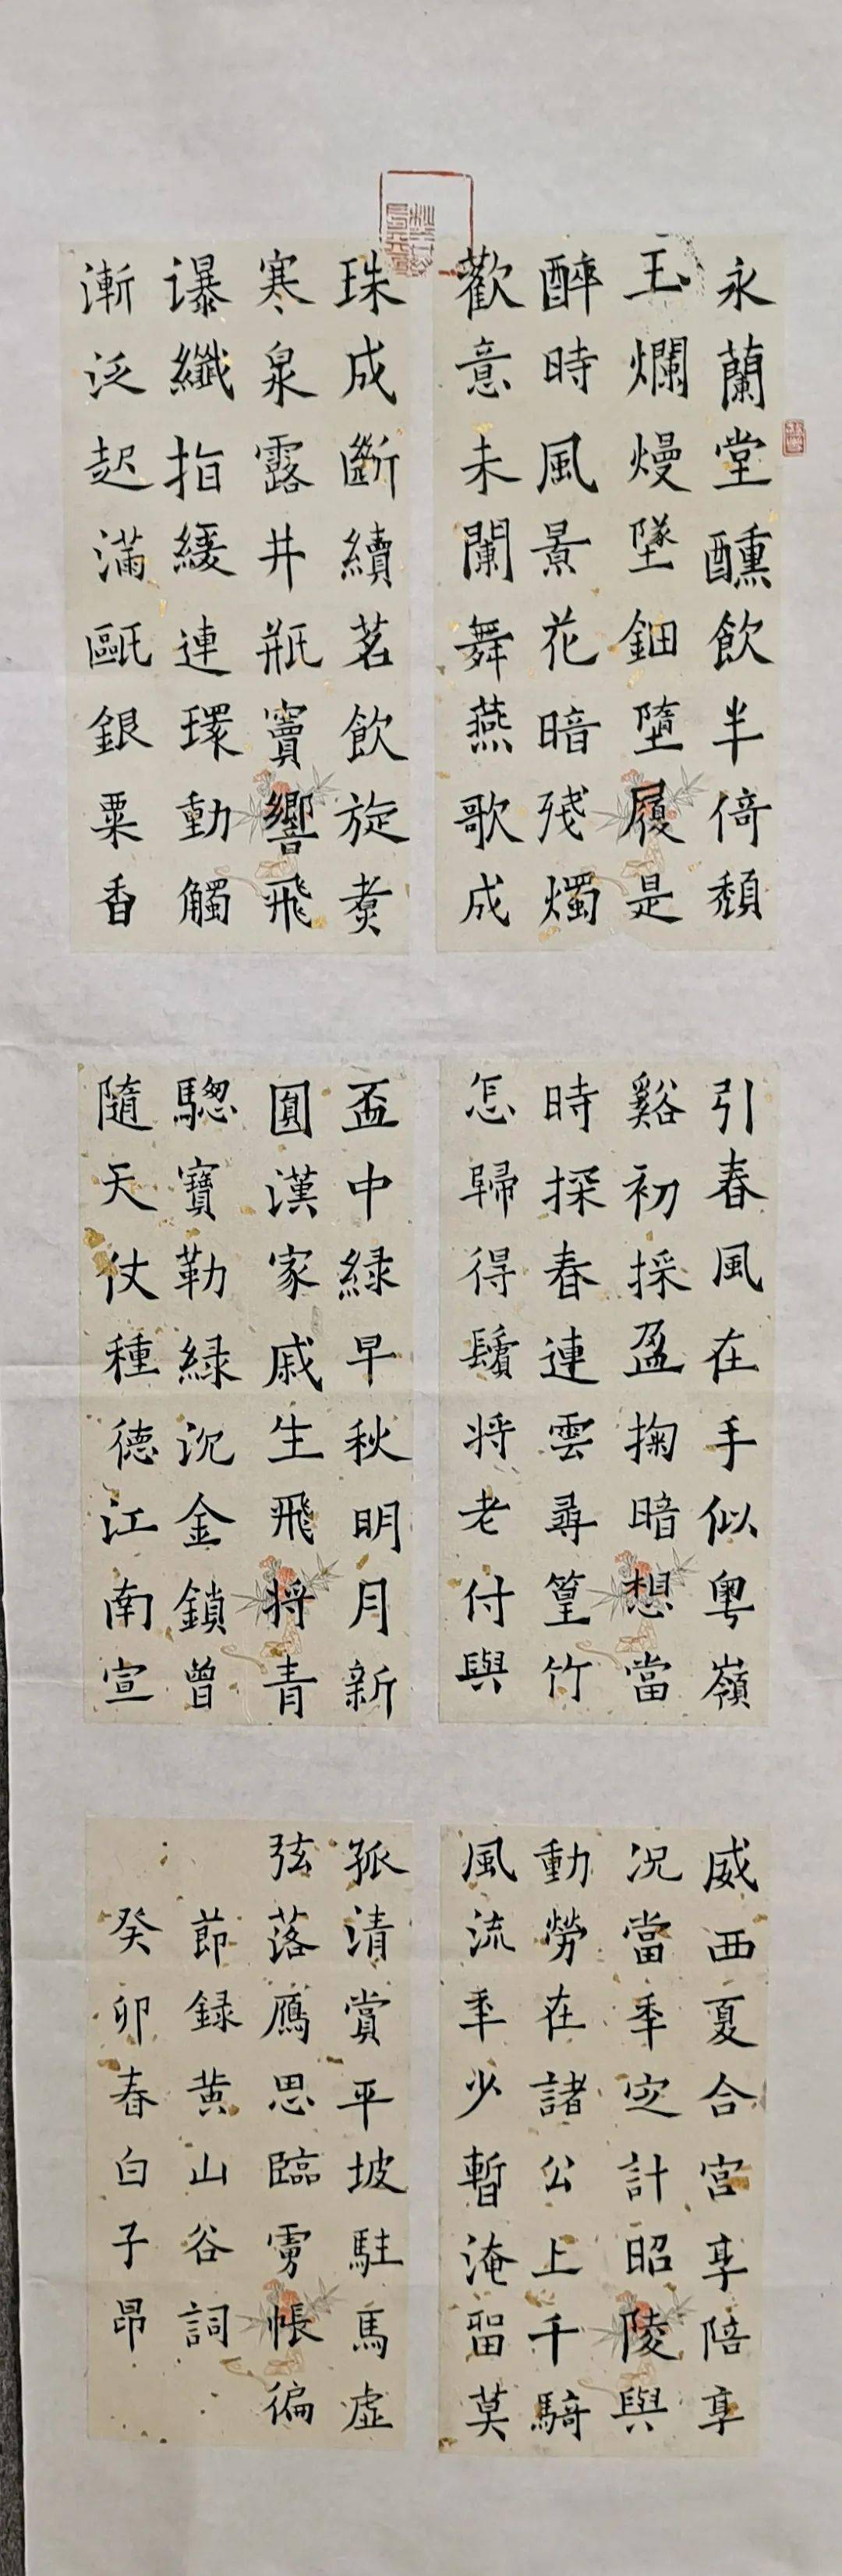 永蘭堂醺飲半倚頹
玉爛熳墜鈿墮履是
醉時風景花暗殘燭
歡意未闌舞燕歌成
珠成斷續茗飲旋煑
寒泉露井瓶竇響飛
瀑纖指緩連環動觸
漸泛起滿甌銀粟香
引春風在手似粤嶺
谿初採盈掬暗想當
時探春連雲尋篁竹
怎歸得鬢將老付與
盃中緑早秋明月新
圓漢家戚生飛将青
驄寶勒緑沉金鎖曾
隨天仗種德江南宣
威西夏合宮享陪享
况當年定計昭陵與
動勞在諸公上千騎
風流年少暫淹留莫
孤清賞平坡駐馬虚
弦落鴈思臨虜帳徧
節録黄山谷詞
癸卯春白子昂